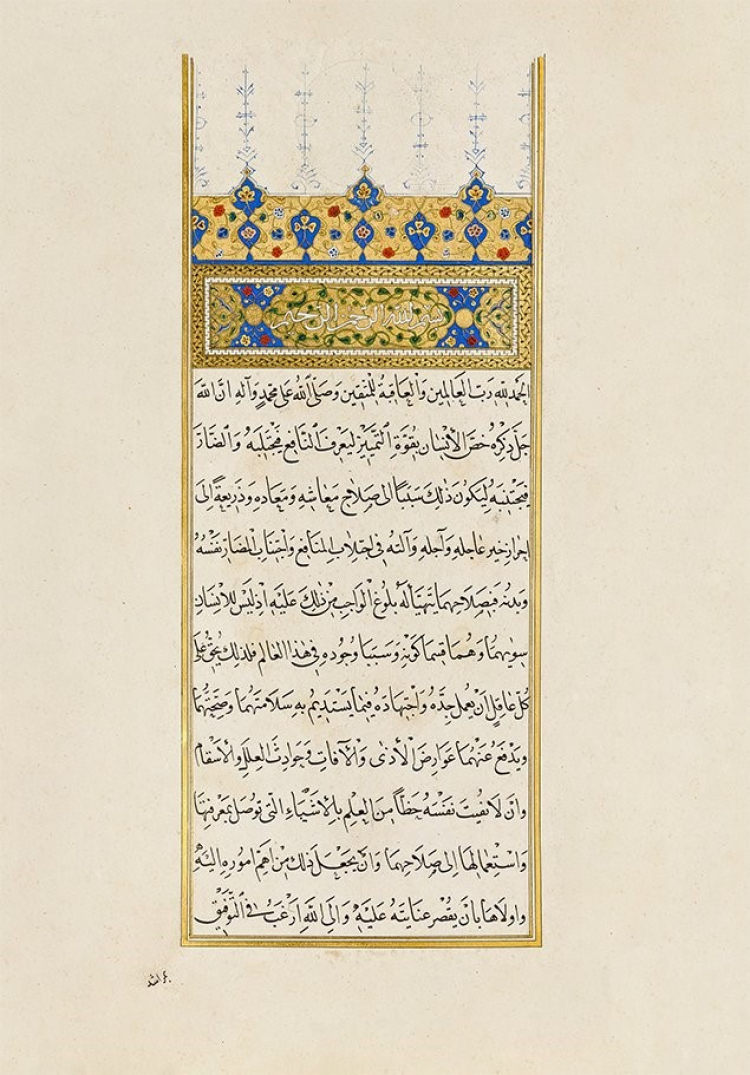 بسم الله الرحمن الرحيم
الحمد لله رب العالمين والعاقبة للمتقين وصلى الله على محمد وآله ان الله
جل ذكره خص الأنسان بقوة التمييز ليعرف النافع فيجتلبه والضار
فيجتنبه ليكون ذلك سببا الى صلاح معاشه ومعاده وذريعة إلى
احراز خير عاجله وآجله وآلته في اجتلاب المنافع واجتناب المضار نفسه
وبدنه فبصلاحهما يتهيأ له بلوغ الواجب من ذلك عليه اذ ليس للأنسان
سويهما وهما قسما كونه وسببا وجوده في هذا العالم فلذلك يحق على
كل عاقل أن يعمل جده واجتهاده فيما يستديم به سلامتهما وصحتهما
ويدفع عنهما عوارض الأذى والآفات وحوادث العلل والأسقام
وان لا تفيت نفسه حظا من العلم بالأشياء التي توصل بمعرفتها
واستعمالها الى صلاحهما وان يجعل ذلك من اهم اموره اليه
واولاها بأن يقصر عنايته عليه والى الله ارغب في التوفيق